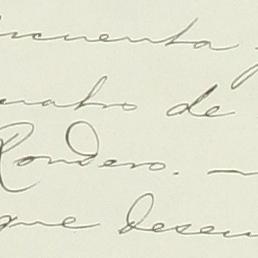 incuenta y
uatro de
Rondero. —
que desem